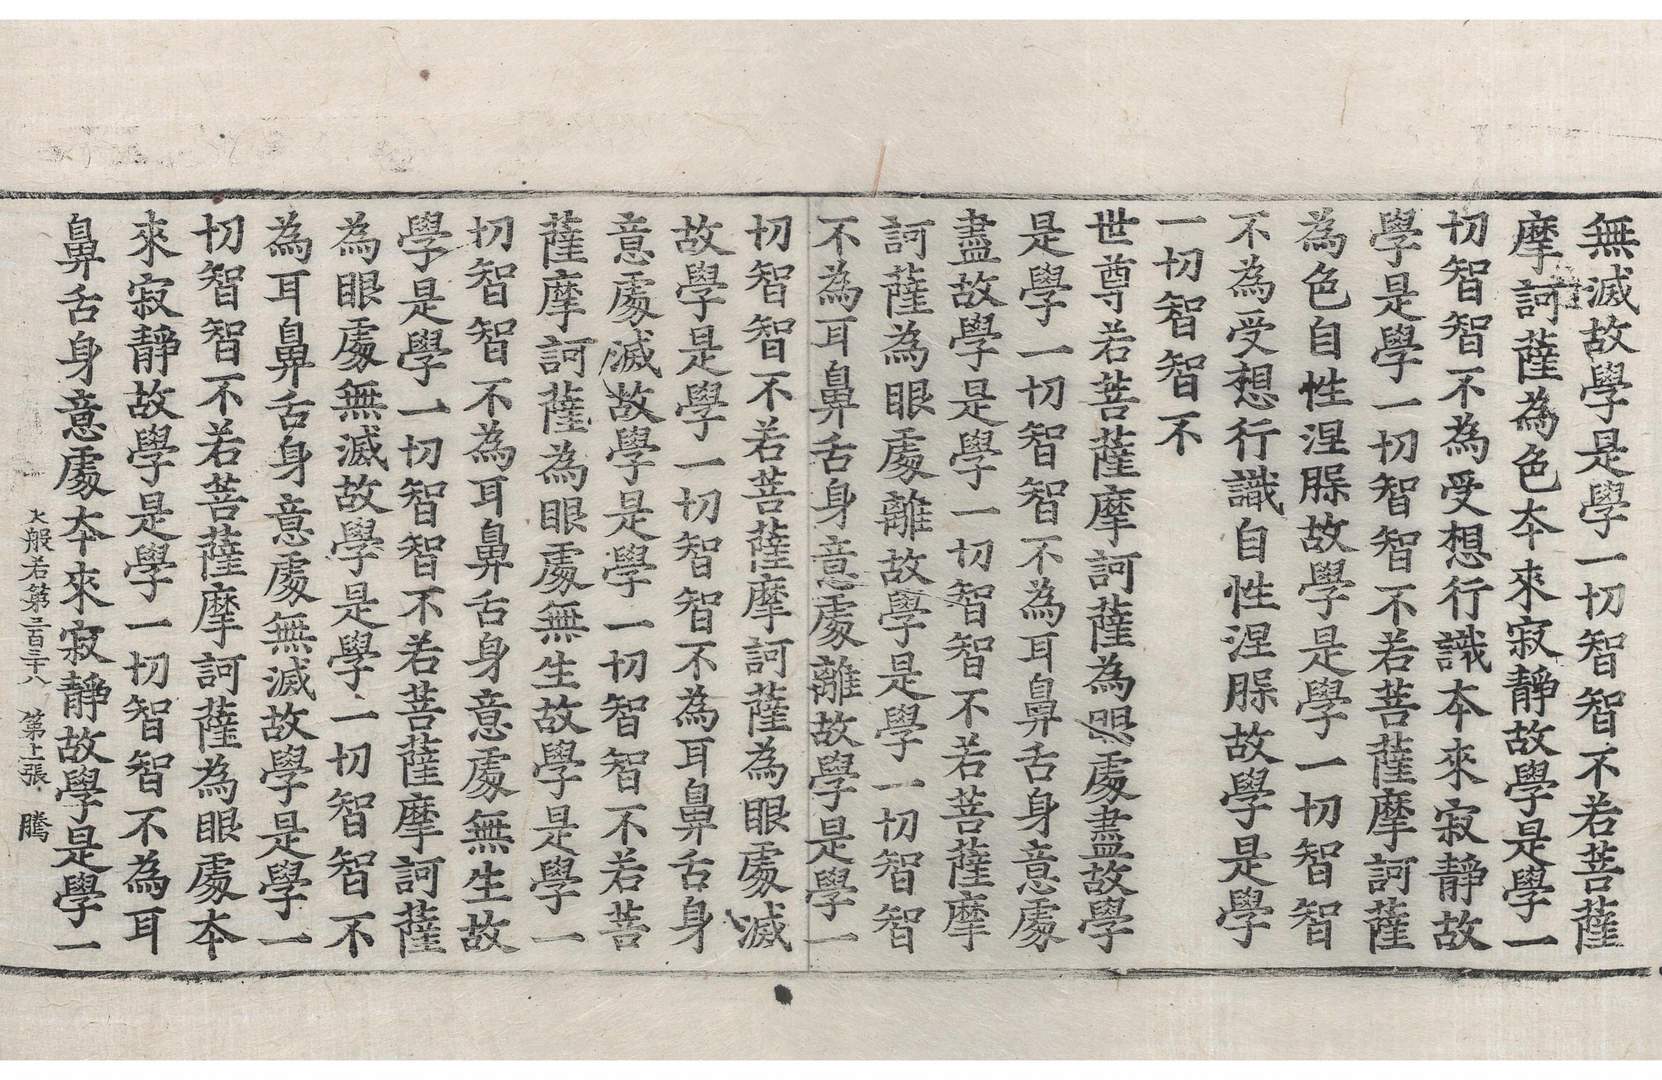 無滅故學是學一切智智不若菩薩
摩訶薩為色本來寂靜故學是學一
切智智不為受想行識本來寂靜故
學是學一切智智不若菩薩摩訶薩
為色自性涅槃故學是學一切智智
不為受想行識自性涅槃故學是學
一切智智不
世尊若菩薩摩訶薩為眼處盡故學
是學一切智智不為耳鼻舌身意處
盡故學是學一切智智不若菩薩摩
訶薩為眼處離故學是學一切智智
不為耳鼻舌身意處離故學是學一
切智智不若菩薩摩訶薩為眼處滅
故學是學一切智智不為耳鼻舌身
意處滅故學是學一切智智不若菩
薩摩訶薩為眼處無生故學是學一
切智智不為耳鼻舌身意處無生故
學是學一切智智不若菩薩摩訶薩
為眼處無滅故學是學一切智智不
為耳鼻舌身意處無滅故學是學一
切智智不若菩薩摩訶薩為眼處本
來寂靜故學是學一切智智不為耳
鼻舌身意處本來寂靜故學是學一
大般若第三百三十八 第十一張 騰